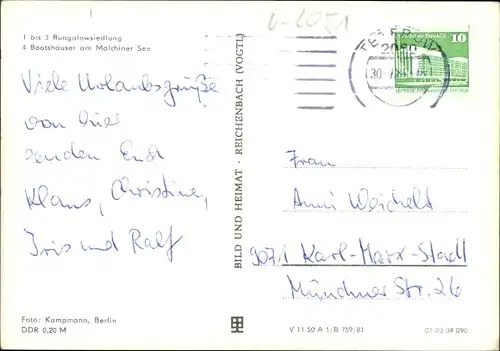 1 bis 3 Bungalowsiedlung
4 Bootshäuser am Malchiner See
Viele Urlaubsgrüße
von hier
senden Euch
Klaus, Christine,
Iris und Ralf
Foto: Kampmann, Berlin
DDR 0,20 M
BILD UND HEIMAT · REICHENBACH (VOGTL)
10
Frau
Anni Weichelt
9071 Karl-Marx-Stadt
Münchner Str. 26
V 11 50 A 1/B 759/81
01 03 04 090